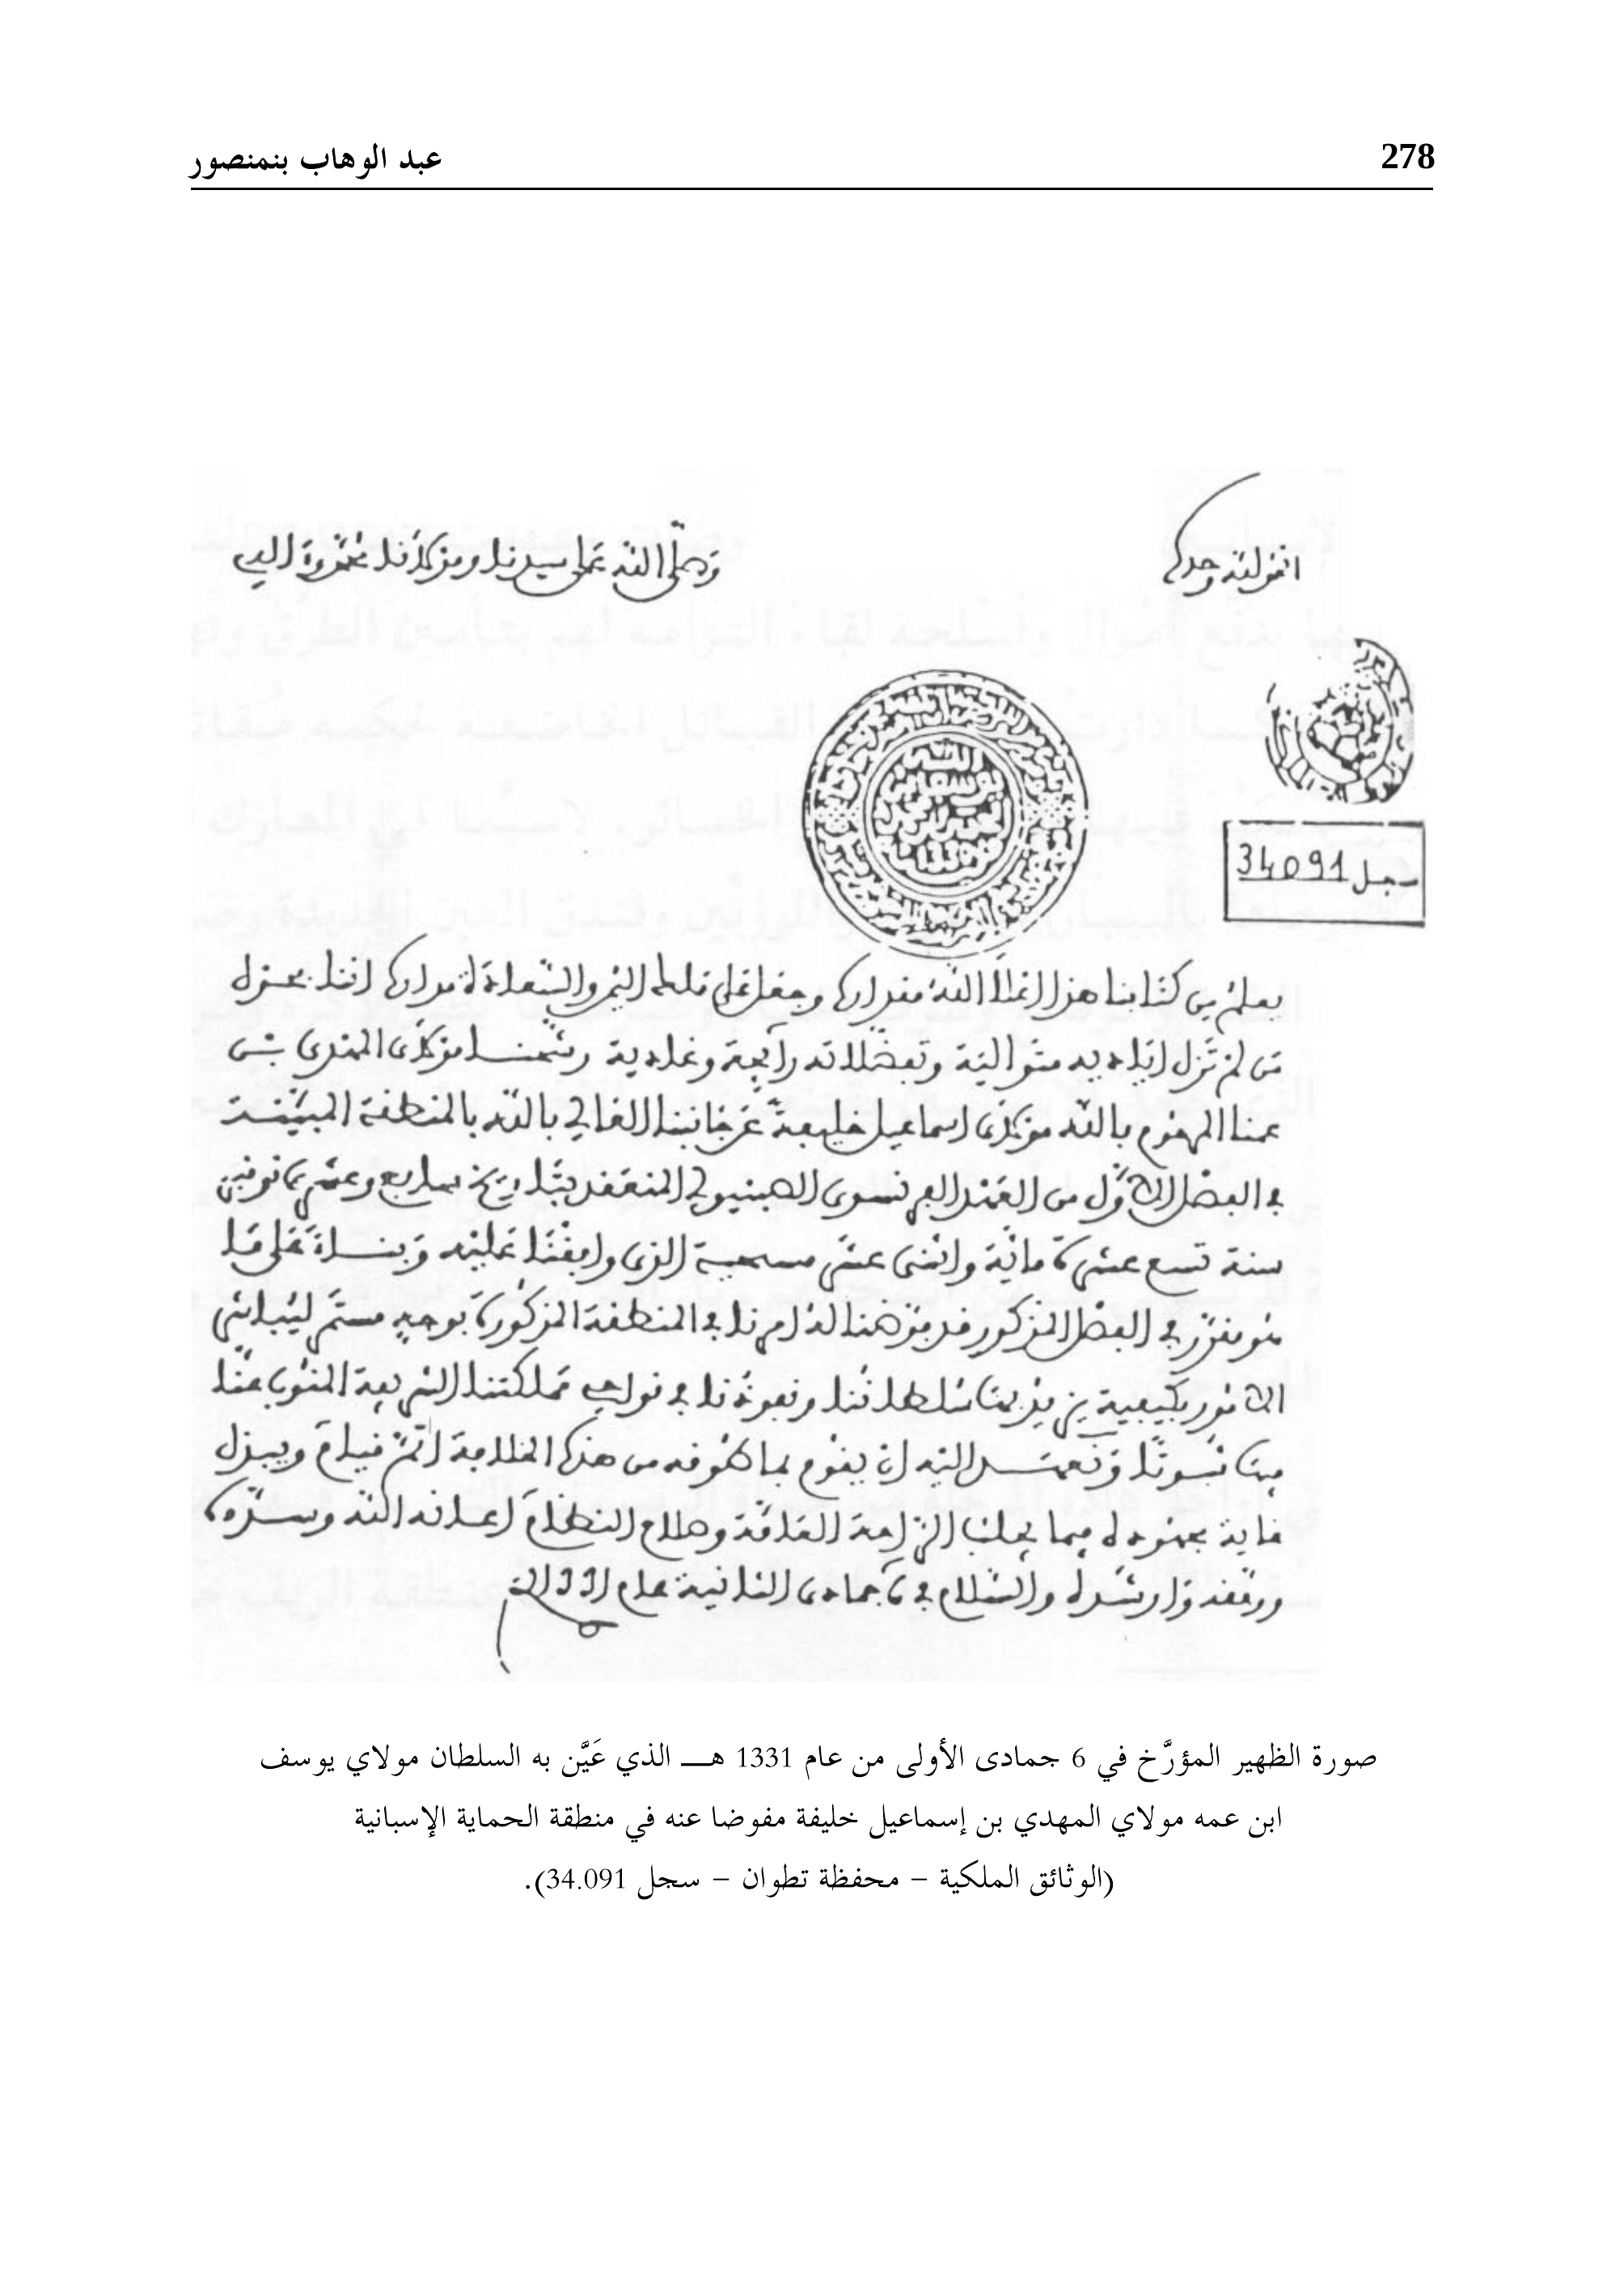 278
عبد الوهاب بنمنصور
الحمد لله وحده
وصلى الله على سيدنا ومولانا محمد وآله
سجل 34091
يعلم من كتابنا هذا أعلا الله مقداره وجعل على قطب اليمن والسعادة مداره اننا بحول
من لم تزل أياديه متوالية وتفضلاته رائحة وغادية رشحنا مولاي المهدي بن
عمنا المرحوم بالله مولاي اسماعيل خليفة عن جانبنا العالي بالله بالمنطقة المبينة
في الفصل الأول من العقد الفرنسوي الصبنيولي المنعقد بتاريخ سابع وعشري نونبر
سنة تسع عشرة مائة واثنى عشر مسيحية الذي وافقنا عليه وبناء على ما
هو مقرر في الفصل المذكور قد فوضنا له أمرنا في المنطقة المذكورة بوجه مستمر ليباشر
الأمور بكيفية سلطاننا ونفوذنا في نواحي مملكتنا الشريفة المنوب عنا
فيها ونعهد إليه أن يقوم بما طوقه من هذه الخلافة أتم قيام ويبذل
غاية مجهوده فيما يجلب الراحة العامة وصلاح النظام أعانه الله وسدده
ووفقه وأرشده والسلام في 6 جمادى الثانية عام 1331
صورة الظهير المؤرَّخ في 6 جمادى الأولى من عام 1331 هـ الذي عَيَّن به السلطان مولاي يوسف
ابن عمه مولاي المهدي بن إسماعيل خليفة مفوضا عنه في منطقة الحماية الإسبانية
(الوثائق الملكية – محفظة تطوان – سجل 34.091).